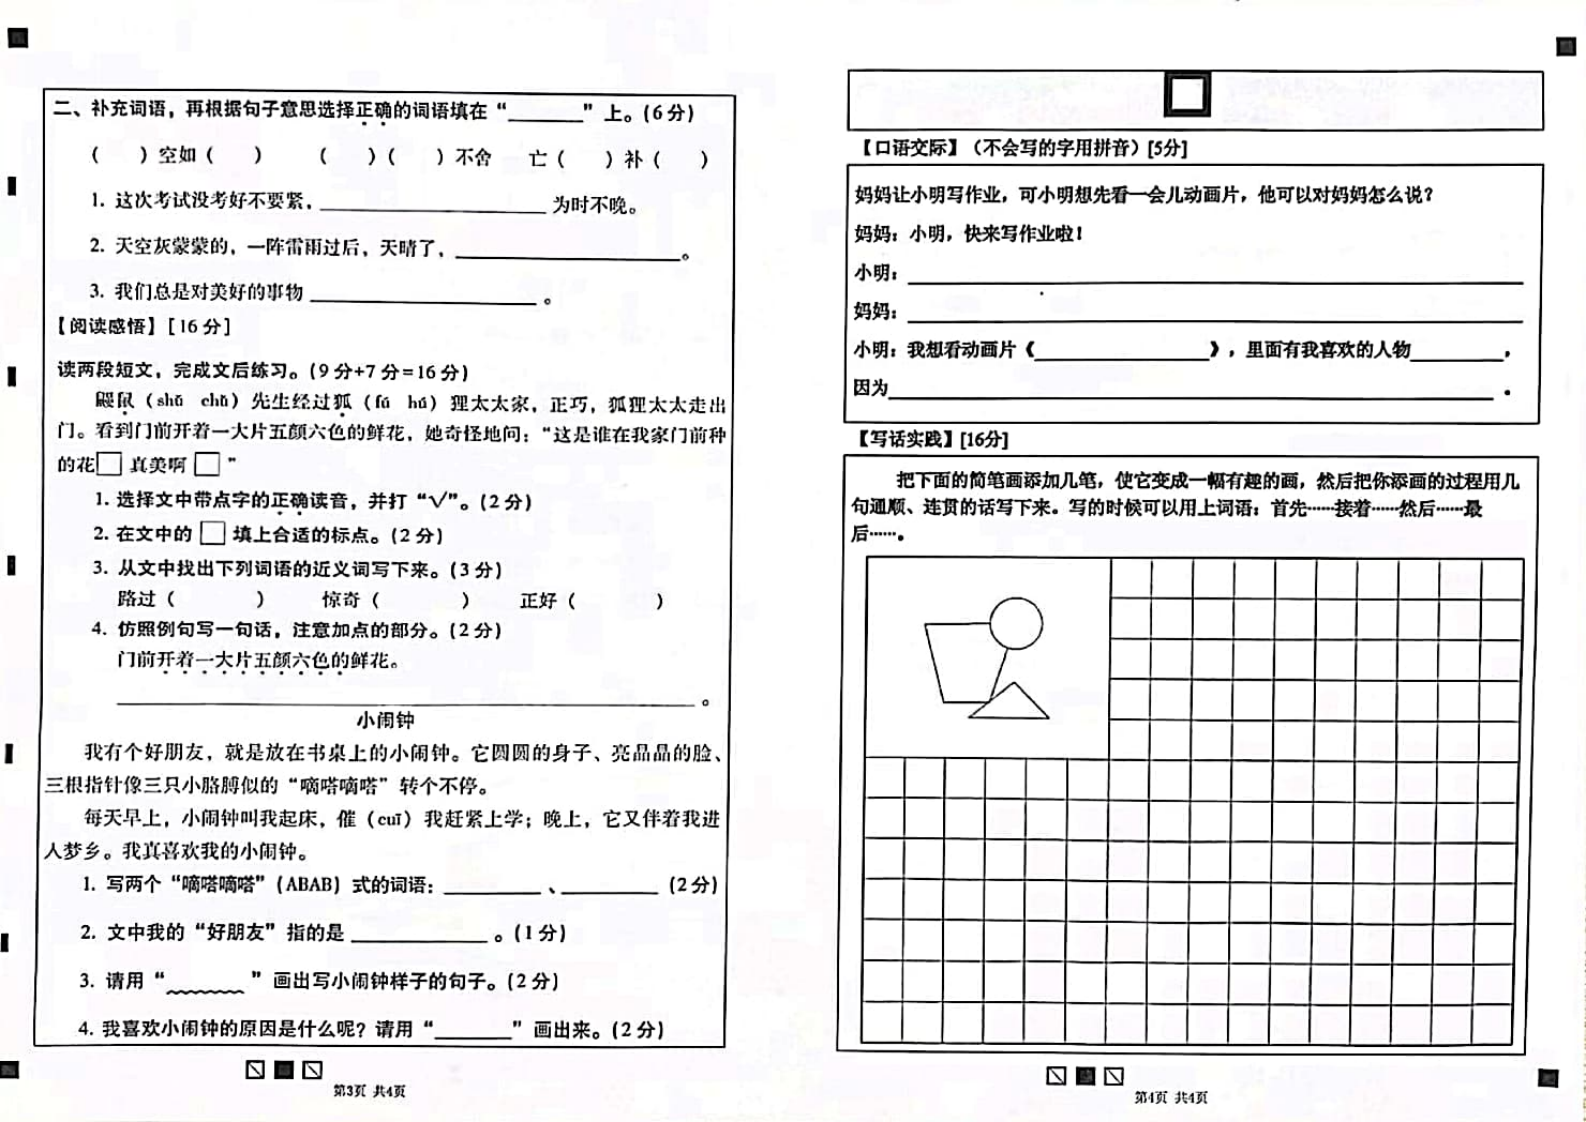 二、补充词语，再根据句子意思选择正确的词语填在“________”上。(6分)
(    )空如(    )    (    )(    )不舍    亡(    )补(    )
1. 这次考试没考好不要紧，____________________为时不晚。
2. 天空灰蒙蒙的，一阵雷雨过后，天晴了，____________________。
3. 我们总是对美好的事物____________________。
【阅读感悟】[16分]
读两段短文，完成文后练习。(9分+7分=16分)
鼹鼠（shǔ  chǔ）先生经过狐（fú  hú）狸太太家，正巧，狐狸太太走出
门。看到门前开着一大片五颜六色的鲜花，她奇怪地问：“这是谁在我家门前种
的花□真美啊□”
1. 选择文中带点字的正确读音，并打“√”。(2分)
2. 在文中的□填上合适的标点。(2分)
3. 从文中找出下列词语的近义词写下来。(3分)
路过（        ）    惊奇（        ）    正好（        ）
4. 仿照例句写一句话，注意加点的部分。(2分)
门前开着一大片五颜六色的鲜花。
________________________________________。
小闹钟
我有个好朋友，就是放在书桌上的小闹钟。它圆圆的身子、亮晶晶的脸、
三根指针像三只小胳膊似的“嘀嗒嘀嗒”转个不停。
每天早上，小闹钟叫我起床，催（cuī）我赶紧上学；晚上，它又伴着我进
入梦乡。我真喜欢我的小闹钟。
1. 写两个“嘀嗒嘀嗒”(ABAB)式的词语：__________、__________(2分)
2. 文中我的“好朋友”指的是______________。(1分)
3. 请用“________”画出写小闹钟样子的句子。(2分)
4. 我喜欢小闹钟的原因是什么呢？请用“________”画出来。(2分)
第3页 共4页
【口语交际】（不会写的字用拼音）[5分]
妈妈让小明写作业，可小明想先看一会儿动画片，他可以对妈妈怎么说？
妈妈：小明，快来写作业啦！
小明：________________________________________
妈妈：________________________________________
小明：我想看动画片《________________》，里面有我喜欢的人物________，
因为________________________________________。
【写话实践】[16分]
把下面的简笔画添加几笔，使它变成一幅有趣的画，然后把你添画的过程用几
句通顺、连贯的话写下来。写的时候可以用上词语：首先……接着……然后……最
后……。
第4页 共4页